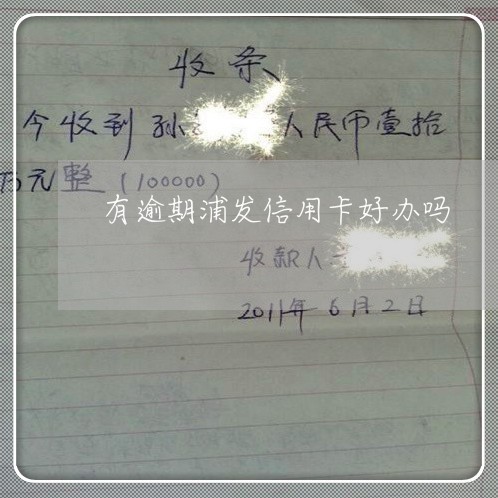 收条
今收到孙 人民币壹拾
万元整（100000）
有逾期浦发信用卡好办吗
收款人
2011年6月2日